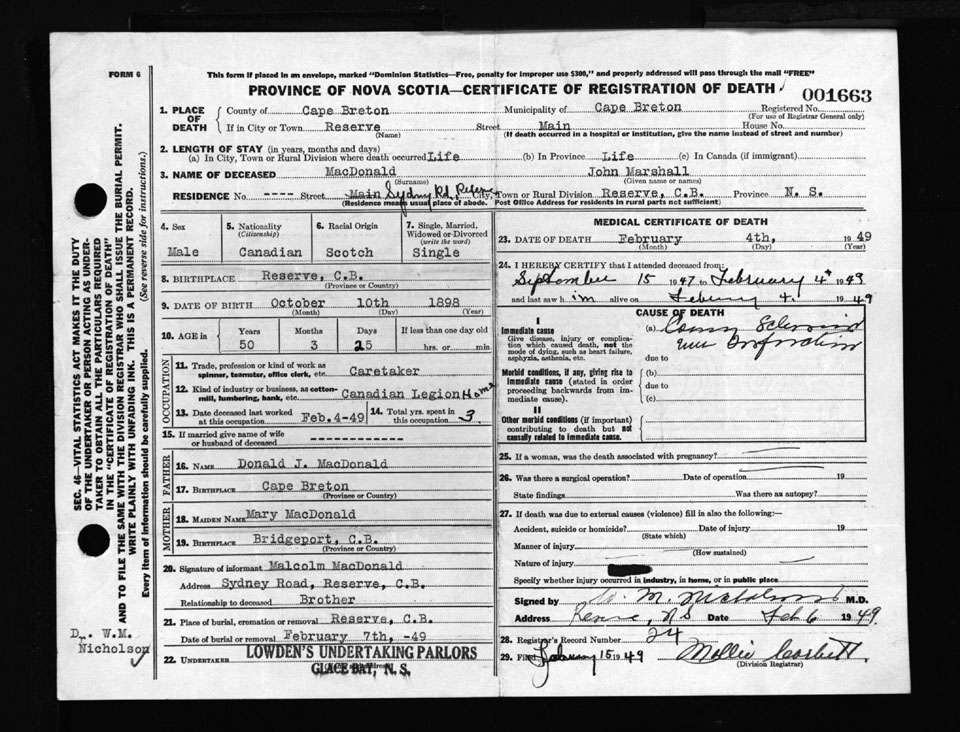 FORM 6
This form if placed in an envelope, marked "Dominion Statistics—Free, penalty for improper use $300," and properly addressed will pass through the mail "FREE"
PROVINCE OF NOVA SCOTIA—CERTIFICATE OF REGISTRATION OF DEATH
001663
1. PLACE OF DEATH
County of Cape Breton Municipality of Cape Breton Registered No.
(For use of Registrar General only)
If in City or Town Reserve Street Main House No.
(Name) (If death occurred in a hospital or institution, give the name instead of street and number)
2. LENGTH OF STAY (in years, months and days)
(a) In City, Town or Rural Division where death occurred Life (b) In Province Life (c) In Canada (if immigrant)
3. NAME OF DECEASED MacDonald John Marshall
(Surname) (Given name or names)
RESIDENCE No. ---- Street Main Sydney Rd, City, Town or Rural Division Reserve, C.B. Province N. S.
(Residence means usual place of abode. Post Office Address for residents in rural parts not sufficient)
4. Sex
Male
5. Nationality
(Citizenship)
Canadian
6. Racial Origin
Scotch
7. Single, Married, Widowed or Divorced
(write the word)
Single
8. BIRTHPLACE Reserve, C.B.
(Province or Country)
9. DATE OF BIRTH October 10th 1898
(Month) (Day) (Year)
10. AGE in Years Months Days If less than one day old
50 3 25 hrs. or min
OCCUPATION
11. Trade, profession or kind of work as
spinner, teamster, office clerk, etc. Caretaker
12. Kind of industry or business, as cotton-
mill, lumbering, bank, etc. Canadian Legion Home
13. Date deceased last worked
at this occupation Feb.4-49
14. Total yrs. spent in
this occupation 3.
15. If married give name of wife
or husband of deceased -------------
FATHER
16. NAME Donald J. MacDonald
17. BIRTHPLACE Cape Breton
(Province or Country)
MOTHER
18. MAIDEN NAME Mary MacDonald
19. BIRTHPLACE Bridgeport, C.B.
(Province or Country)
20. Signature of informant Malcolm MacDonald
Address Sydney Road, Reserve, C.B.
Relationship to deceased Brother
21. Place of burial, cremation or removal Reserve, C.B.
Date of burial or removal February 7th, -49
22. UNDERTAKER LOWDEN'S UNDERTAKING PARLORS
GLACE BAY, N. S.
MEDICAL CERTIFICATE OF DEATH
23. DATE OF DEATH February 4th, 1949
(Month) (Day) (Year)
24. I HEREBY CERTIFY that I attended deceased from:
September 15 1947 to February 4th 1949
and last saw him alive on February 4. 1949
CAUSE OF DEATH
I
Immediate cause
Give disease, injury or complica-
tion which caused death, not the
mode of dying, such as heart failure,
asphyxia, asthenia, etc.
(a)
due to
Morbid conditions, if any, giving rise to
immediate cause (stated in order
proceeding backwards from im-
mediate cause).
(b)
due to
(c)
II
Other morbid conditions (if important)
contributing to death but not
causally related to immediate cause.
25. If a woman, was the death associated with pregnancy?
26. Was there a surgical operation? Date of operation 19
State findings Was there an autopsy?
27. If death was due to external causes (violence) fill in also the following:—
Accident, suicide or homicide? Date of injury 19
(State which)
Manner of injury
(How sustained)
Nature of injury
Specify whether injury occurred in industry, in home, or in public place
Signed by W. M. Nicholson M.D.
Address Reserve, NS Date Feb 6 1949
28. Registrar's Record Number 24
29. Filed February 15 1949 Mollie Corbett.
(Division Registrar)
SEC. 46—VITAL STATISTICS ACT MAKES IT THE DUTY
OF THE UNDERTAKER OR PERSON ACTING AS UNDER-
TAKER TO OBTAIN ALL THE PARTICULARS REQUIRED
IN THE "CERTIFICATE OF REGISTRATION OF DEATH"
AND TO FILE THE SAME WITH THE DIVISION REGISTRAR WHO SHALL ISSUE THE BURIAL PERMIT.
WRITE PLAINLY WITH UNFADING INK. THIS IS A PERMANENT RECORD.
Every item of information should be carefully supplied. (See reverse side for instructions.)
Dr. W.M.
Nicholson